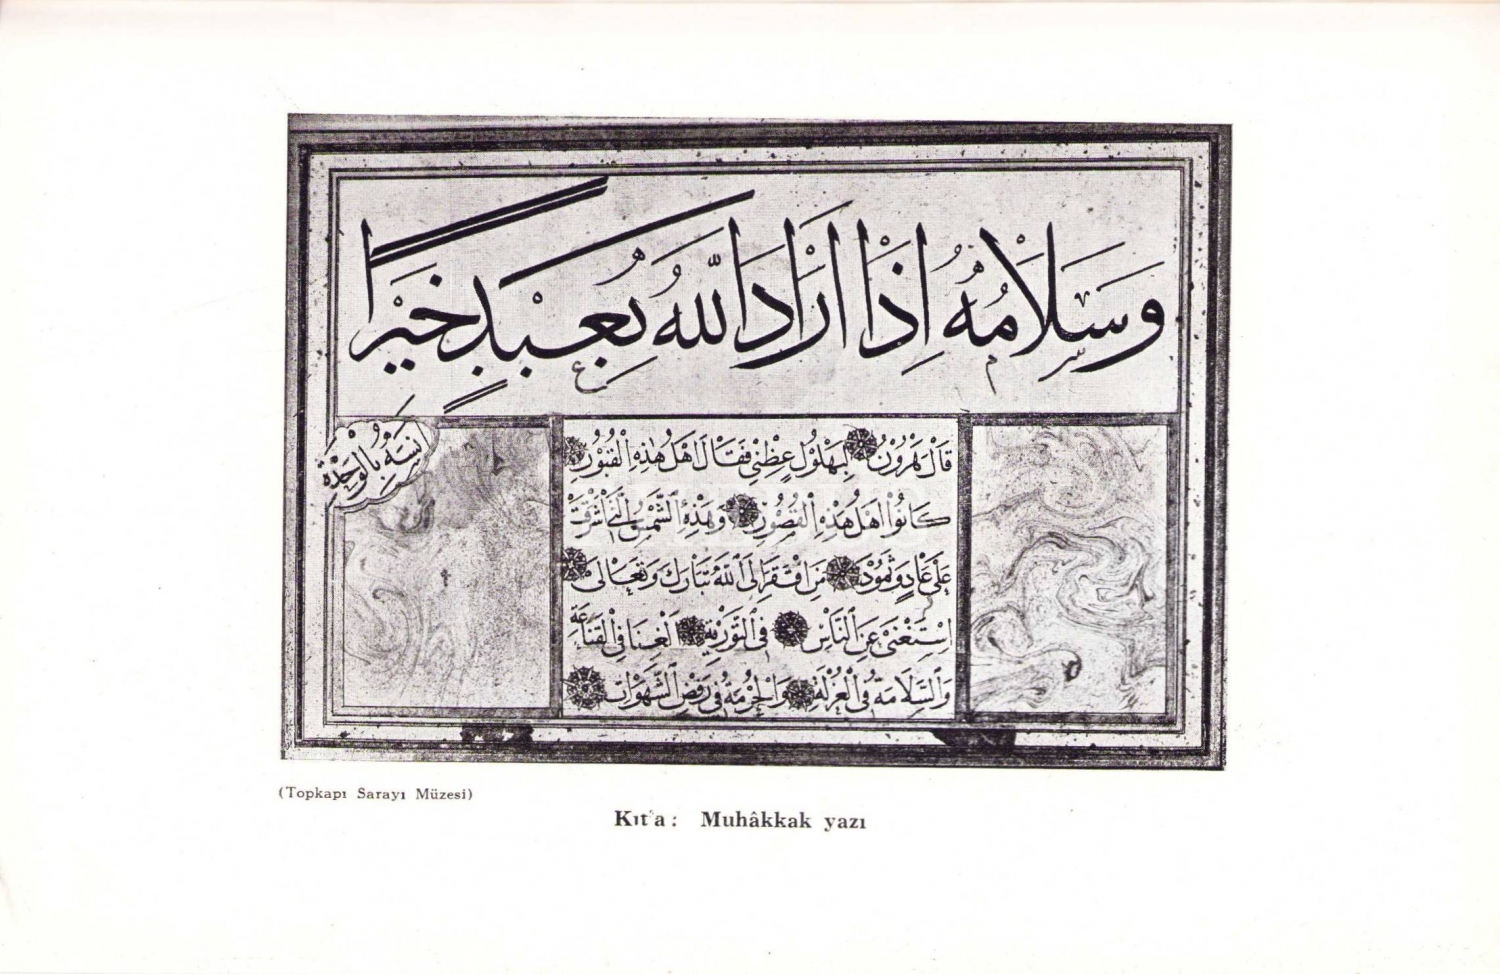 وَسَلَامُهُ اِذَا اَرَادَ اللّٰهُ بِعَبْدٍ خَيْرًا
اٰنَسَهُ بِالْوَحْدَةِ
قَالَ هٰرُونُ لِبَهْلُولَ عِظْنِي فَقَالَ اَهْلُ هٰذِهِ الْقُبُورِ
كَانُوا اَهْلَ هٰذِهِ الْقُصُورِ وَهٰذِهِ الشَّمْسُ الَّتِي اَشْرَقَتْ
عَلٰى عَادٍ وَثَمُودَ مَنِ افْتَقَرَ اِلَى اللّٰهِ تَبَارَكَ وَتَعَالٰى
اِسْتَغْنٰى عَنِ النَّاسِ فِي التَّوْرٰيةِ الْغِنَا فِي الْقَنَاعَةِ
وَالسَّلَامَةُ فِي الْعُزْلَةِ وَالْحُرْمَةُ فِي رَفْضِ الشَّهَوَاتِ
(Topkapı Sarayı Müzesi)
Kıt'a : Muhâkkak yazı